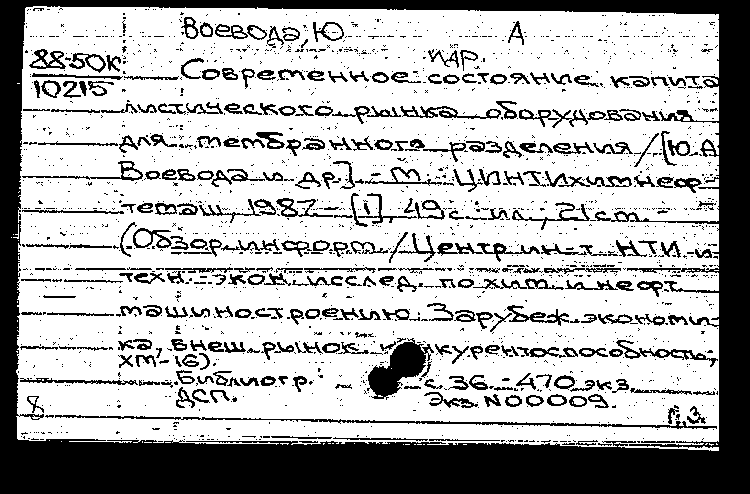 Воевода, Ю А
И ДР.
88-50К
10215
Современное состояние капита
листического рынка оборудования
для мембранного разделения / [Ю.А
Воевода и др.] - М. : ЦИНТИхимнеф-
темаш, 1987 - [1], 49 с. : ил. ; 21 см. -
(Обзор. информ. / Центр. ин-т НТИ и
техн.-экон. исслед. по хим. и нефт.
машиностроению. Зарубеж. экономи-
ка, внеш. рынок конкурентоспособность;
ХМ-16).
Библиогр.: с. 36. - 470 экз.
ДСП. Экз. N00009.
8 П.З.